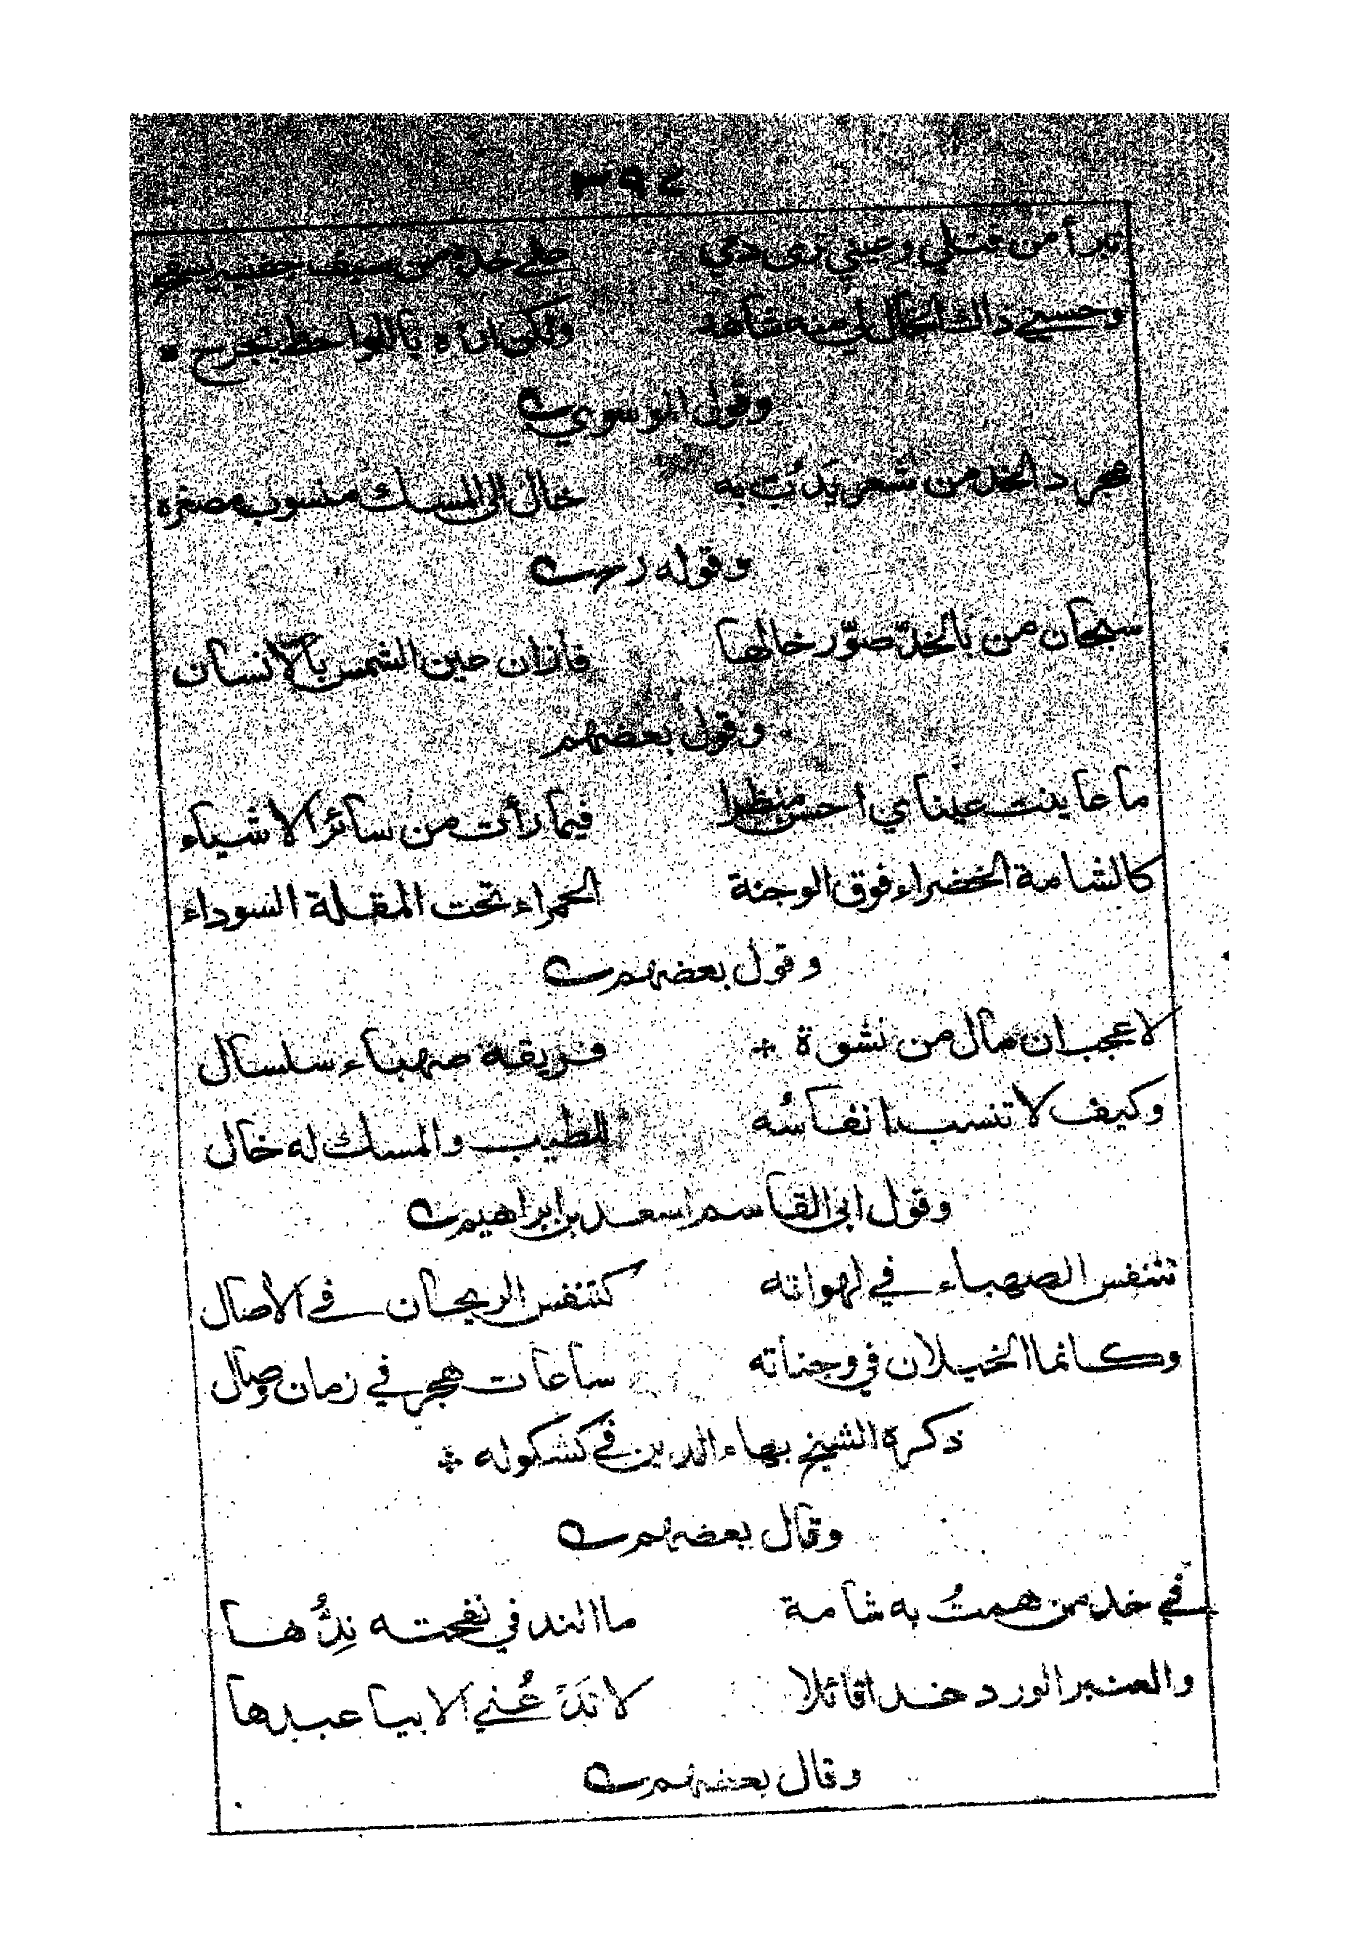 ٣٩٤
تبرأ من قتلي وعيني ترى دمي على خده من سيف جفنيه يسفح
وحسبي ذاك الخال لي منه شاهد ولكن اراه باللواحظ يجرح
وقول الموسوي
مجرد الخد من شعر يدُبّ به خال الى المسك منسوب مصغره
وقوله
سبحان من بالخدّ صوّر خالها فأزان عين الشمس بالانسان
وقول بعضهم
ما عاينت عيناي احسن منظرا فيما رأت من سائر الاشياء
كالشامة الخضراء فوق الوجنة الحمراء تحت المقلة السوداء
وقول بعضهم
لا عجب ان مال من نشوة * فريقه صهباء سلسال
وكيف لا تنسب انفاسُه للطيب والمسك له خال
وقول ابي القاسم اسعد بن ابراهيم
تتنفس الصهباء في لهواته كتنفس الريحان في الآصال
وكانما الخيلان في وجناته ساعات هجر في زمان وصال
ذكرة الشيخ بهاء الدين في كشكوله *
وقال بعضهم
في خد من همتُ به شامة ما الند في نفحته نِدُّها
والعنبر الورد غدا قائلا لا تدعُني الا بيا عبدها
وقال بعضهم